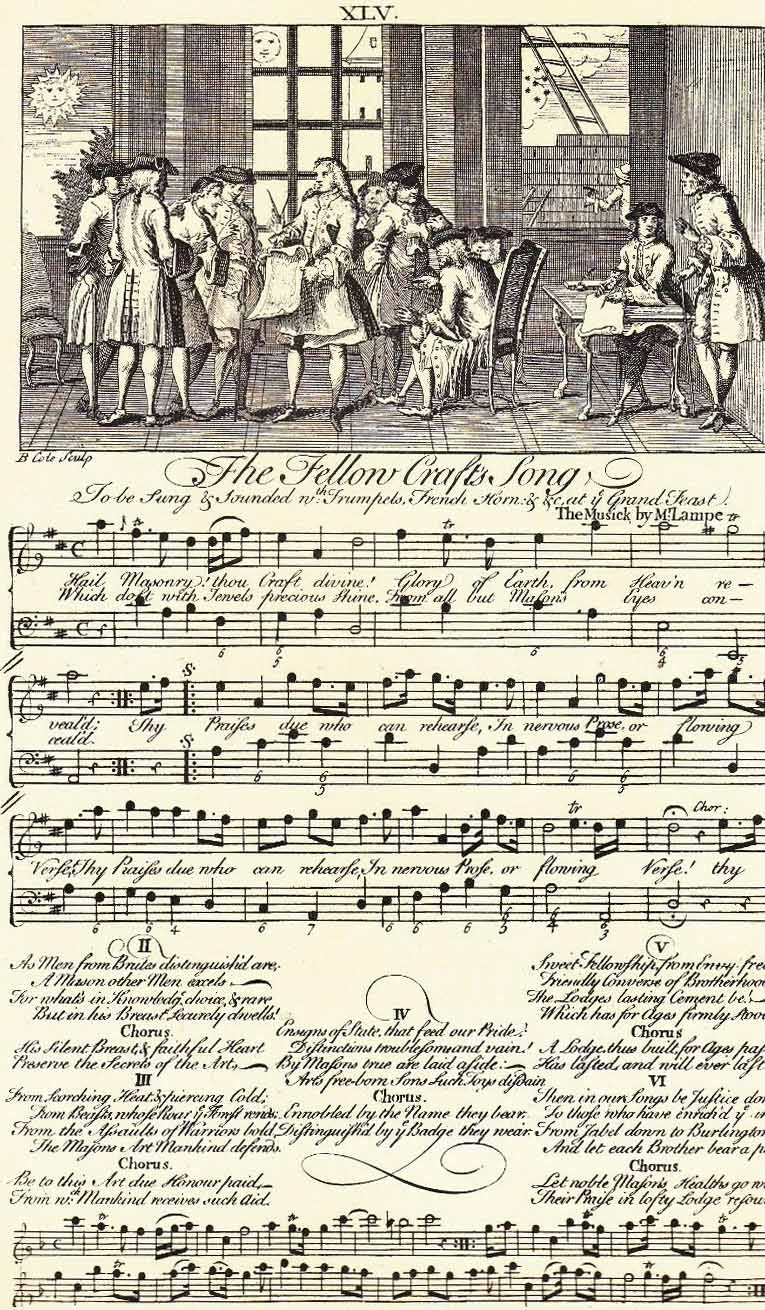 XLV.
B Cole Sculp
The Fellow Crafts Song,
To be Sung & Sounded wth. Trumpets, French Horns & &c, at ye Grand Feast.
The Musick by Mr. Lampe
tr tr tr
Hail Masonry! thou Craft divine! Glory of Earth, from Heav'n re-
Which dost with Jewels precious shine, From all but Masons Eyes con-
6 6 5 6 6 4 5
:S:
veal'd; Thy Praises due who can rehearse, In nervous Prose, or flowing
ceal'd.
:S:
6 6 5 6 6 6 5
tr Chor:
Verse! Thy Praises due who can rehearse, In nervous Prose, or flowing Verse! thy
6 6 4 6 7 6 6 6 6 5 6 4 6 3
II
As Men from Brutes distinguish'd are,
A Mason other Men excels
For what's in Knowledg choice, & rare
But in his Breast securely dwells!
Chorus.
His silent Breast, & faithful Heart
Preserve the Secrets of the Art.
III
From scorching Heat & piercing Cold;
From Beasts, whose Roar ye Forest rends;
From the Assaults of Warriors bold,
The Masons Art Mankind defends.
Chorus.
Be to this Art due Honour paid,
From wch. Mankind receives such Aid.
IV
Ensigns of State, that feed our Pride,
Distinctions troublesome and vain!
By Masons true are laid aside:
Arts free-born Sons such Toys disdain
Chorus.
Ennobled by the Name they bear.
Distinguish'd by ye Badge they wear.
V
Sweet Fellowship, from Envy free
Friendly Converse of Brotherhood
The Lodges lasting Cement be!
Which has for Ages firmly stoo
Chorus
A Lodge, thus built, for Ages pas
Has lasted, and will ever last
VI
Then in our Songs be Justice don
To those who have enrich'd ye
From Jabel down to Burlington
And let each Brother bear a p
Chorus.
Let noble Masons, Healths go r
Their Praise in lofty Lodge resou